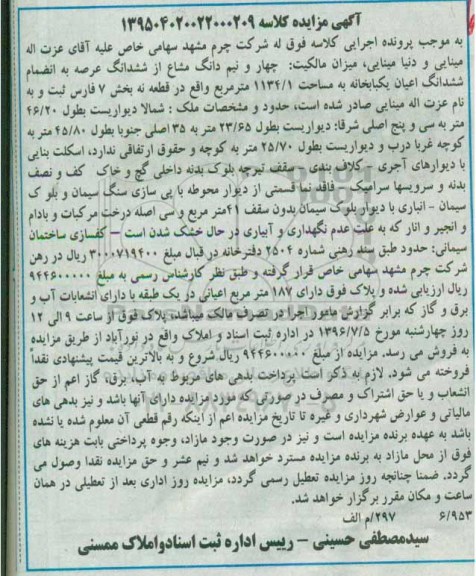 آگهی مزایده کلاسه ۱۳۹۵۰۴۰۲۰۰۲۲۰۰۰۲۰۹
به موجب پرونده اجرایی کلاسه فوق له شرکت چرم مشهد سهامی خاص علیه آقای عزت اله
مینایی و دنیا مینایی، میزان مالکیت: چهار و نیم دانگ مشاع از ششدانگ عرصه به انضمام
ششدانگ اعیان یکبابخانه به مساحت ۱۱۳۴/۱ مترمربع واقع در قطعه نه بخش ۷ فارس ثبت و به
نام عزت اله مینایی صادر شده است، حدود و مشخصات ملک : شمالا دیواریست بطول ۴۶/۲۰
متر به سی و پنج اصلی شرقا: دیواریست بطول ۲۳/۶۵ متر به ۳۵ اصلی جنوبا بطول ۴۵/۸۰ متر به
کوچه غربا درب و دیواریست بطول ۲۵/۷۰ متر به کوچه و حقوق ارتفاقی ندارد، اسکلت بنایی
با دیوارهای آجری - کلاف بندی - سقف تیرچه بلوک بدنه داخلی گچ و خاک کف و نصف
بدنه و سرویسها سرامیک - فاقد نما قسمتی از دیوار محوطه با پی سازی سنگ سیمان و بلوک
سیمان - انباری با دیوار بلوک سیمان بدون سقف ۴۱متر مربع و سی اصله درخت مرکبات و بادام
و انجیر و انار که به علت عدم نگهداری و آبیاری در حال خشک شدن است – کفسازی ساختمان
سیمانی: حدود طبق سند رهنی شماره ۲۵۰۴ دفترخانه در قبال مبلغ ۳۰۰۰۷۱۹۴۰۰ ریال در رهن
شرکت چرم مشهد سهامی خاص قرار گرفته و طبق نظر کارشناس رسمی به مبلغ ۹۴۴۶۰۰۰۰۰
ریال ارزیابی شده و پلاک فوق دارای ۱۸۷ متر مربع اعیانی در یک طبقه با دارای انشعابات آب و
برق و گاز که برابر گزارش مامور اجرا در تصرف مالک میباشد، پلاک فوق از ساعت ۹ الی ۱۲
روز چهارشنبه مورخ ۱۳۹۶/۷/۵ در اداره ثبت اسناد و املاک واقع در نورآباد از طریق مزایده
به فروش می رسد. مزایده از مبلغ ۹۴۴۶۰۰۰۰۰ ریال شروع و به بالاترین قیمت پیشنهادی نقدا
فروخته می شود. لازم به ذکر است پرداخت بدهی های مربوط به آب، برق، گاز اعم از حق
انشعاب و یا حق اشتراک و مصرف در صورتی که مورد مزایده دارای آنها باشد و نیز بدهی های
مالیاتی و عوارض شهرداری و غیره تا تاریخ مزایده اعم از اینکه رقم قطعی آن معلوم شده یا نشده
باشد به عهده برنده مزایده است و نیز در صورت وجود مازاد، وجوه پرداختی بابت هزینه های
فوق از محل مازاد به برنده مزایده مسترد خواهد شد و نیم عشر و حق مزایده نقدا وصول می
گردد. ضمنا چنانچه روز مزایده تعطیل رسمی گردد، مزایده روز اداری بعد از تعطیلی در همان
ساعت و مکان مقرر برگزار خواهد شد.
۶/۹۵۳ ۲۹۷/م الف
سیدمصطفی حسینی – رییس اداره ثبت اسنادواملاک ممسنی